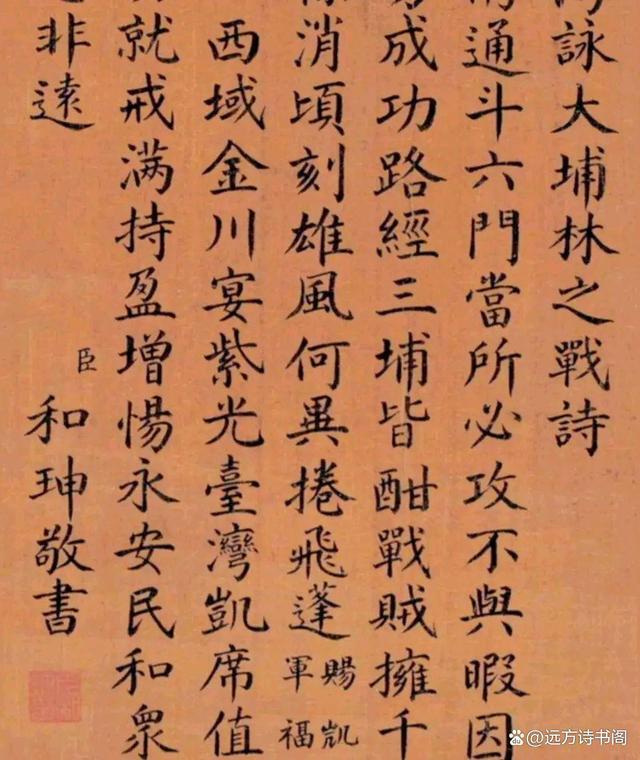 詠大埔林之戰詩
通斗六門當所必攻不與暇因
成功路經三埔皆酣戰賊擁千
消頃刻雄風何異捲飛蓬
賜凱
軍福
西域金川宴紫光臺灣凱席值
就戒满持盈增惕永安民和衆
非遠
臣
和珅敬書
@远方诗书阁